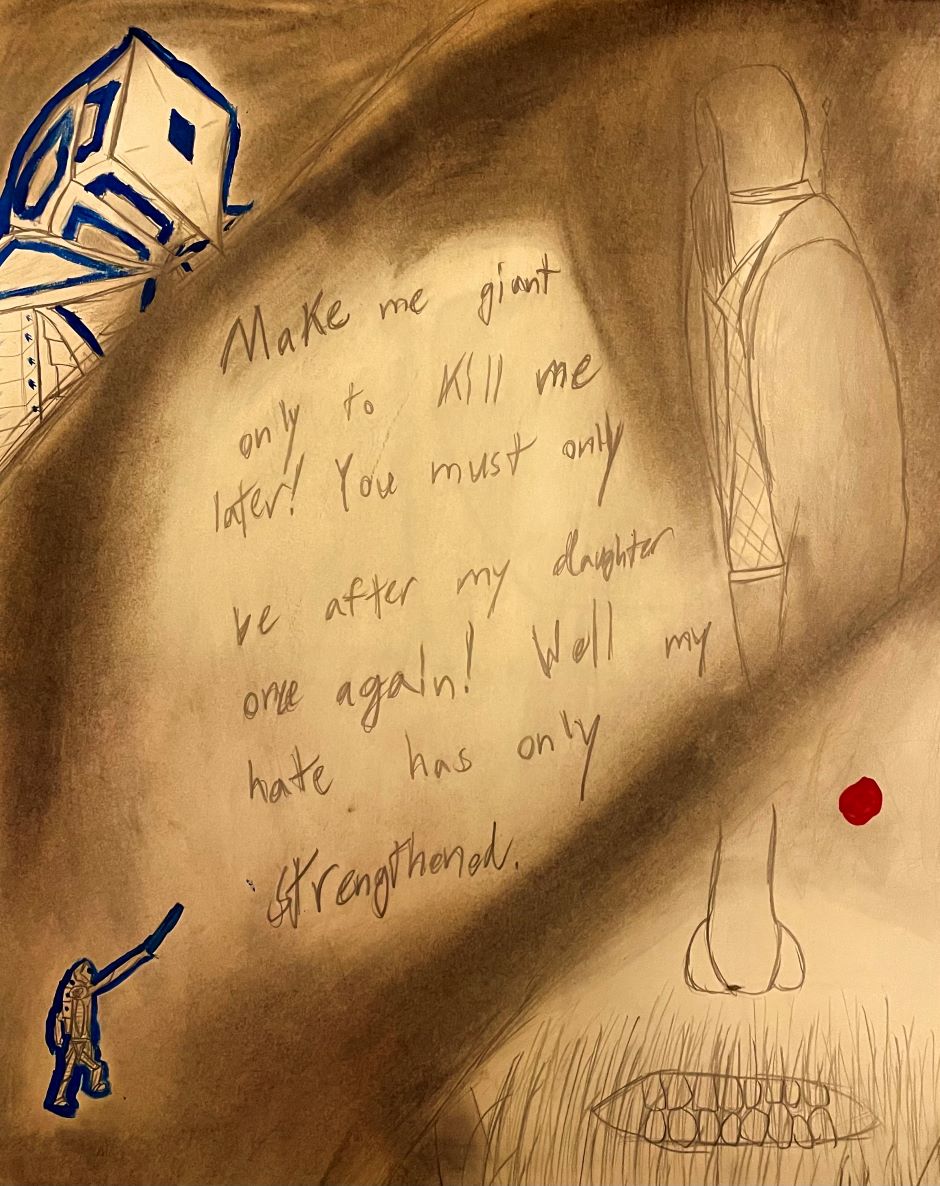 Make me giant
only to kill me
later! You must only
be after my daughter
once again! Well my
hate has only
strengthened.